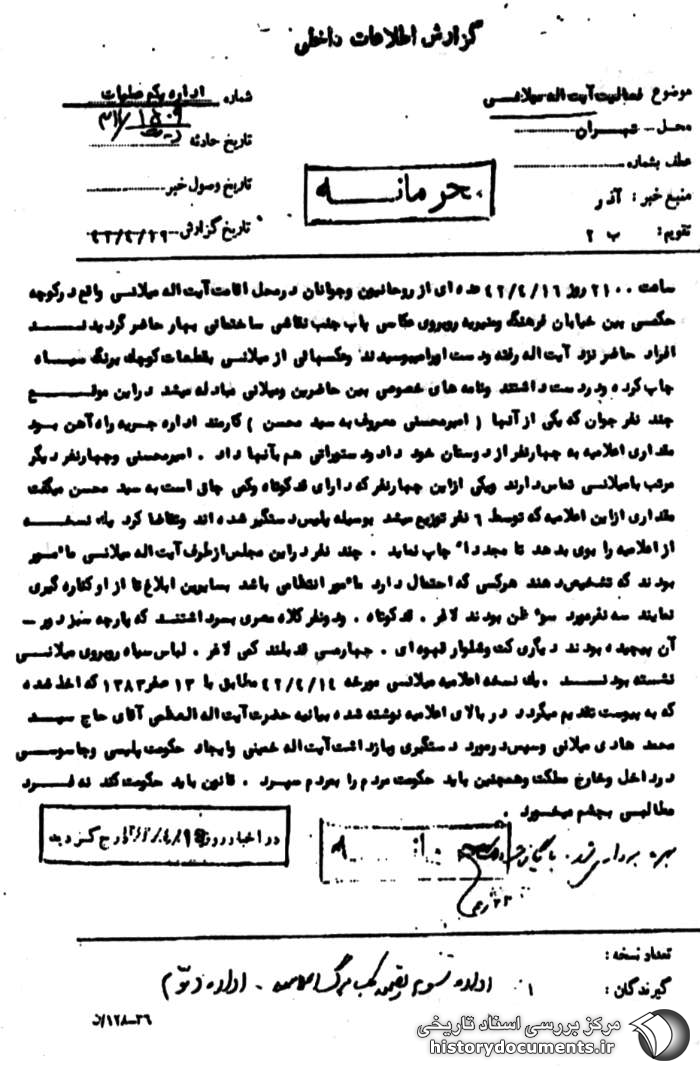 گزارش اطلاعات داخلی
موضوع فعالیت آیت اله میلانی
شماره اداره یکم عملیات
محل - تهران
تاریخ حادثه
عطف بشماره
محرمانه
منبع خبر: آذر
تاریخ وصول خبر
تقویم: ب ۲
تاریخ گزارش ۴۲/۴/۱۹
ساعت ۲۱۰۰ روز ۴۲/۴/۱۶ عده ای از روحانیون و جوانان در محل اقامت آیت اله میلانی واقع در کوچه
حکمی بین خیابان فرهنگ و منیریه روبروی عکاسی باب جنب نقاشی ساختمانی بهار حاضر گردیدند
افراد حاضر نزد آیت اله رفته و دست او را میبوسیدند و عکسهائی از میلانی بقطعات کوچک برنگ سیاه
چاپ کرده و در دست داشتند و نامه های خصوصی بین حاضرین و میلانی مبادله میشد در این موقع
چند نفر جوان که یکی از آنها ( امیر محسنی معروف به سید محسن ) کارمند اداره جریه راه آهن بود
مقداری اعلامیه به چهار نفر از دوستان خود داد و دستوراتی هم بآنها داد . امیر محسنی و چهار نفر دیگر
مرتب با میلانی تماس دارند و یکی از این چهار نفر که دارای قد کوتاه و کمی چاق است به سید محسن میگفت
مقداری از این اعلامیه که توسط ۶ نفر توزیع میشد بوسیله پلیس دستگیر شده اند و تقاضا کرد یک نسخه
از اعلامیه را بوی بدهد تا مجددا" چاپ نماید . چند نفر در این مجلس از طرف آیت اله میلانی مأمور
بودند که تشخیص دهند هر کسی که احتمال دارد مأمور انتظامی باشد بسایرین ابلاغ تا از او کناره گیری
نمایند سه نفر مورد سوء ظن بودند لاغر . قد کوتاه . و دو نفر کلاه مصری بسر داشتند که پارچه سبز دور -
آن پیچیده بودند دیگری کت و شلوار قهوه ای . چهارمی قد بلند کمی لاغر . لباس سیاه روبروی میلانی
نشسته بودند . یک نسخه اعلامیه میلانی مورخه ۴۲/۴/۱۴ مطابق با ۱۳ صفر ۱۳۸۳ که اخذ شده
که به پیوست تقدیم میگردد در بالای اعلامیه نوشته شده بیانیه حضرت آیت اله العظمی آقای حاج سید
محمد هادی میلانی و سپس در مورد دستگیری و بازداشت آیت اله خمینی و ایجاد حکومت پلیسی و جاسوسی
در داخل و خارج مملکت و همچنین باید حکومت مردم را بمردم سپرد . قانون باید حکومت کند نه فرد
مطالبی بچشم میخورد .
در اخبار روز درج گردید
بهره برداری شد . بایگانی
تعداد نسخه :
گیرندگان : ۱ اداره سوم . اداره دوم
۳۶-۱۲۸/د
مرکز بررسی اسناد تاریخی
historydocuments.ir